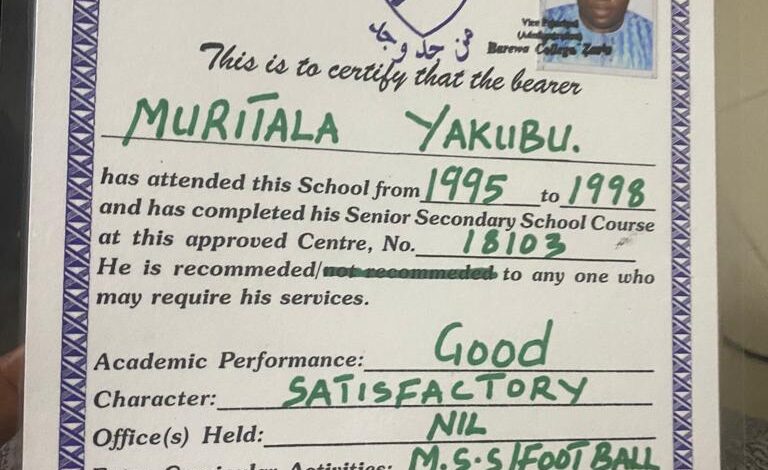 من جد وجد
Vice Principal
(Administration)
Barewa College Zaria
This is to certify that the bearer
MURITALA YAKUBU.
has attended this School from 1995 to 1998
and has completed his Senior Secondary School Course
at this approved Centre, No. 18103
He is recommeded/not recommeded to any one who
may require his services.
Academic Performance: Good
Character: SATISFACTORY
Office(s) Held: NIL
Activities: M.S.S/FOOTBALL